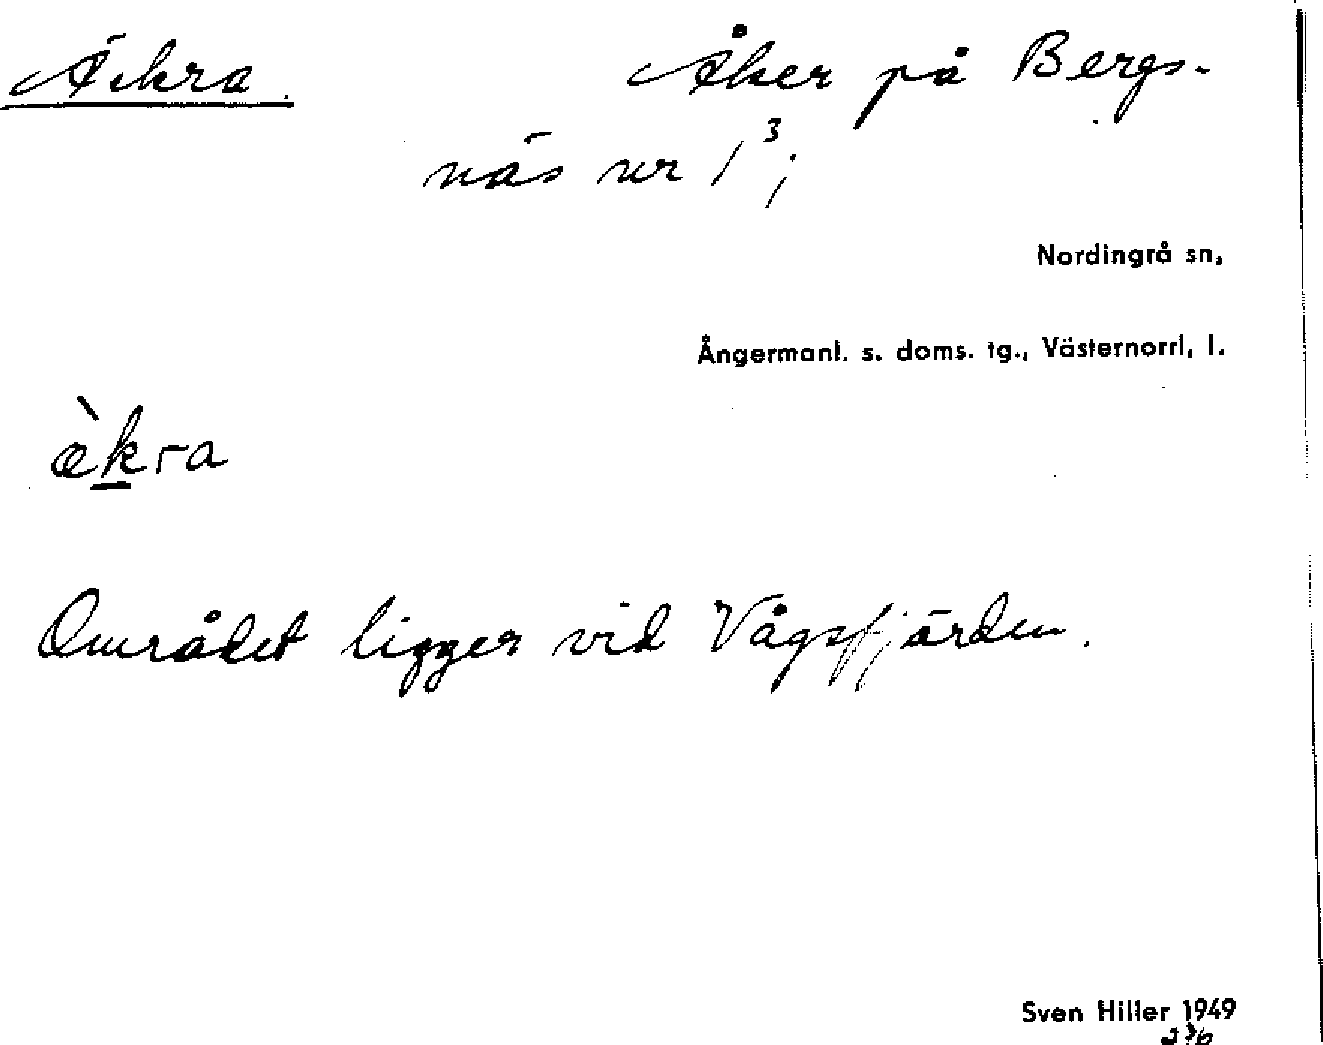 Äckra
Åker på Bergs-
näs nr 1³;
Nordingrå sn,
Ångermanl. s. doms. tg., Västernorrl, l.
æ̀kra
Området ligger vid Vågsfjärden.
Sven Hiller 1949